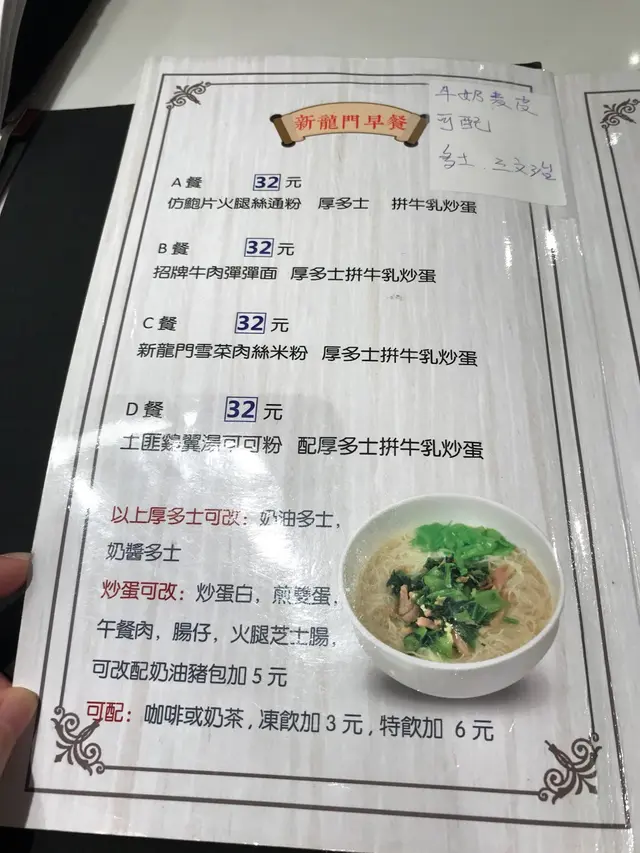 新龍門早餐
牛奶麦皮
可配
多士.三文治
A 餐 32 元
仿鮑片火腿絲通粉 厚多士 拼牛乳炒蛋
B 餐 32 元
招牌牛肉彈彈面 厚多士拼牛乳炒蛋
C 餐 32 元
新龍門雪菜肉絲米粉 厚多士拼牛乳炒蛋
D 餐 32 元
土匪雞翼湯可可粉 配厚多士拼牛乳炒蛋
以上厚多士可改：奶油多士，
奶醬多士
炒蛋可改：炒蛋白，煎雙蛋，
午餐肉，腸仔，火腿芝士腸，
可改配奶油豬包加 5 元
可配：咖啡或奶茶，凍飲加 3 元，特飲加 6 元